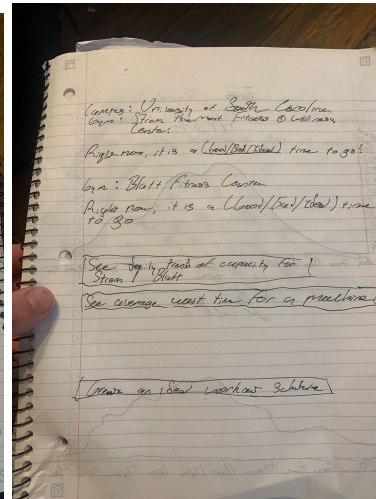 Campus: University of South Carolina
Gym: Strom Thurmond Fitness & Wellness
Center
Right now, it is a (Good/Bad/Ideal) time to go!
Gym: Blatt Fitness Center
Right now, it is a (Good/Bad/Ideal) time
to go
See daily trends of capacity for
Strom / Blatt
See average wait time for a machine
Create an ideal workout schedule